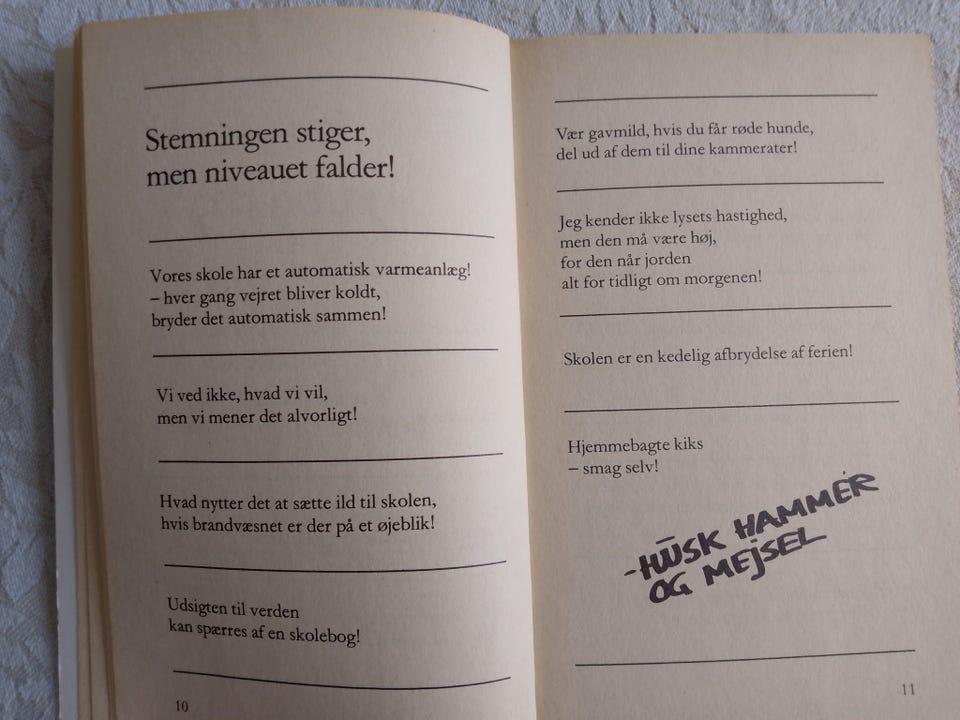 Stemningen stiger,
men niveauet falder!
Vores skole har et automatisk varmeanlæg!
– hver gang vejret bliver koldt,
bryder det automatisk sammen!
Vi ved ikke, hvad vi vil,
men vi mener det alvorligt!
Hvad nytter det at sætte ild til skolen,
hvis brandvæsnet er der på et øjeblik!
Udsigten til verden
kan spærres af en skolebog!
10
Vær gavmild, hvis du får røde hunde,
del ud af dem til dine kammerater!
Jeg kender ikke lysets hastighed,
men den må være høj,
for den når jorden
alt for tidligt om morgenen!
Skolen er en kedelig afbrydelse af ferien!
Hjemmebagte kiks
– smag selv!
-HUSK HAMMER
OG MEJSEL
11